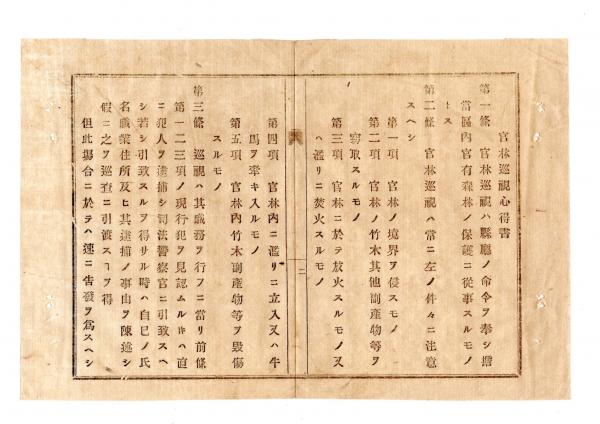 官林巡視心得書
第一條　官林巡視ハ縣廳ノ命令ヲ奉シ擔
當區內官有森林ノ保護ニ從事スルモノ
トス
第二條　官林巡視ハ常ニ左ノ件々ニ注意
スヘシ
第一項　官林ノ境界ヲ侵スモノ
第二項　官林ノ竹木其他副產物等ヲ
竊取スルモノ
第三項　官林ニ於テ放火スルモノ又
ハ濫リニ焚火スルモノ
二
第四項　官林內ニ濫リニ立入又ハ牛
馬ヲ牽キ入ルモノ
第五項　官林內竹木副產物等ヲ毀傷
スルモノ
第三條　巡視ハ其職務ヲ行フニ當リ前條
第一二三項ノ現行犯ヲ見認ムル𪜈ハ直
ニ犯人ヲ逮捕シ司法警察官ニ引致スヘ
シ若シ引致スルヲ得サル時ハ自己ノ氏
名職業住所及ヒ其逮捕ノ事由ヲ陳述シ
假ニ之ヲ巡査ニ引渡スヿヲ得
但此塲合ニ於テハ速ニ告發ヲ爲スヘシ